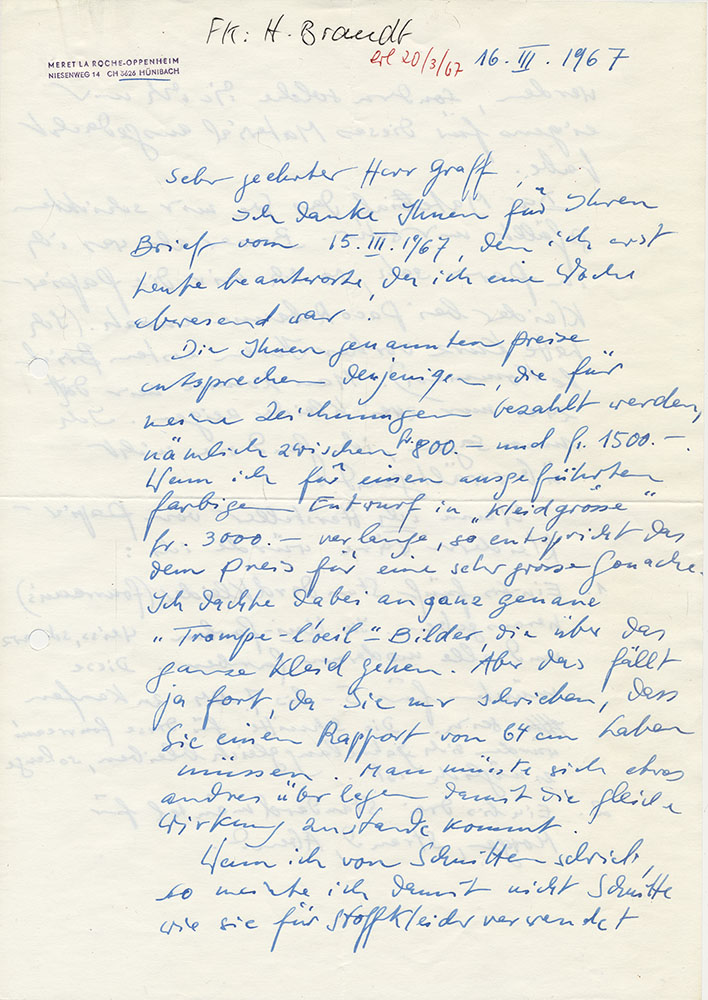 FK: H. Brandt
MERET LA ROCHE-OPPENHEIM
NIESENWEG 14 CH 3626 HÜNIBACH
erl 20/3/67
16. III. 1967
Sehr geehrter Herr Graff,
Ich danke Ihnen für Ihren
Brief vom 15. III. 1967, den ich erst
heute beantworte, da ich eine Woche
abwesend war.
Die Ihnen genannten Preise
entsprechen denjenigen, die für
meine Zeichnungen bezahlt werden,
nämlich zwischen fr. 800.- und fr. 1500.-.
Wenn ich für einen ausgeführten
farbigen Entwurf in "Kleidgrösse"
fr. 3000.- verlange, so entspricht das
dem Preis für eine sehr grosse Gouache.
Ich dachte dabei an ganz genaue
"Trompe-l'oeil"-Bilder, die über das
ganze Kleid gehen. Aber das fällt
ja fort, da Sie mir schrieben, dass
Sie einen Rapport von 64 cm haben
müssen. Man müsste sich etwas
andres überlegen damit die gleiche
Wirkung zustande kommt.
Wenn ich von Schnitten schrieb,
so meinte ich damit nicht Schnitte
wie sie für Stoffkleider verwendet